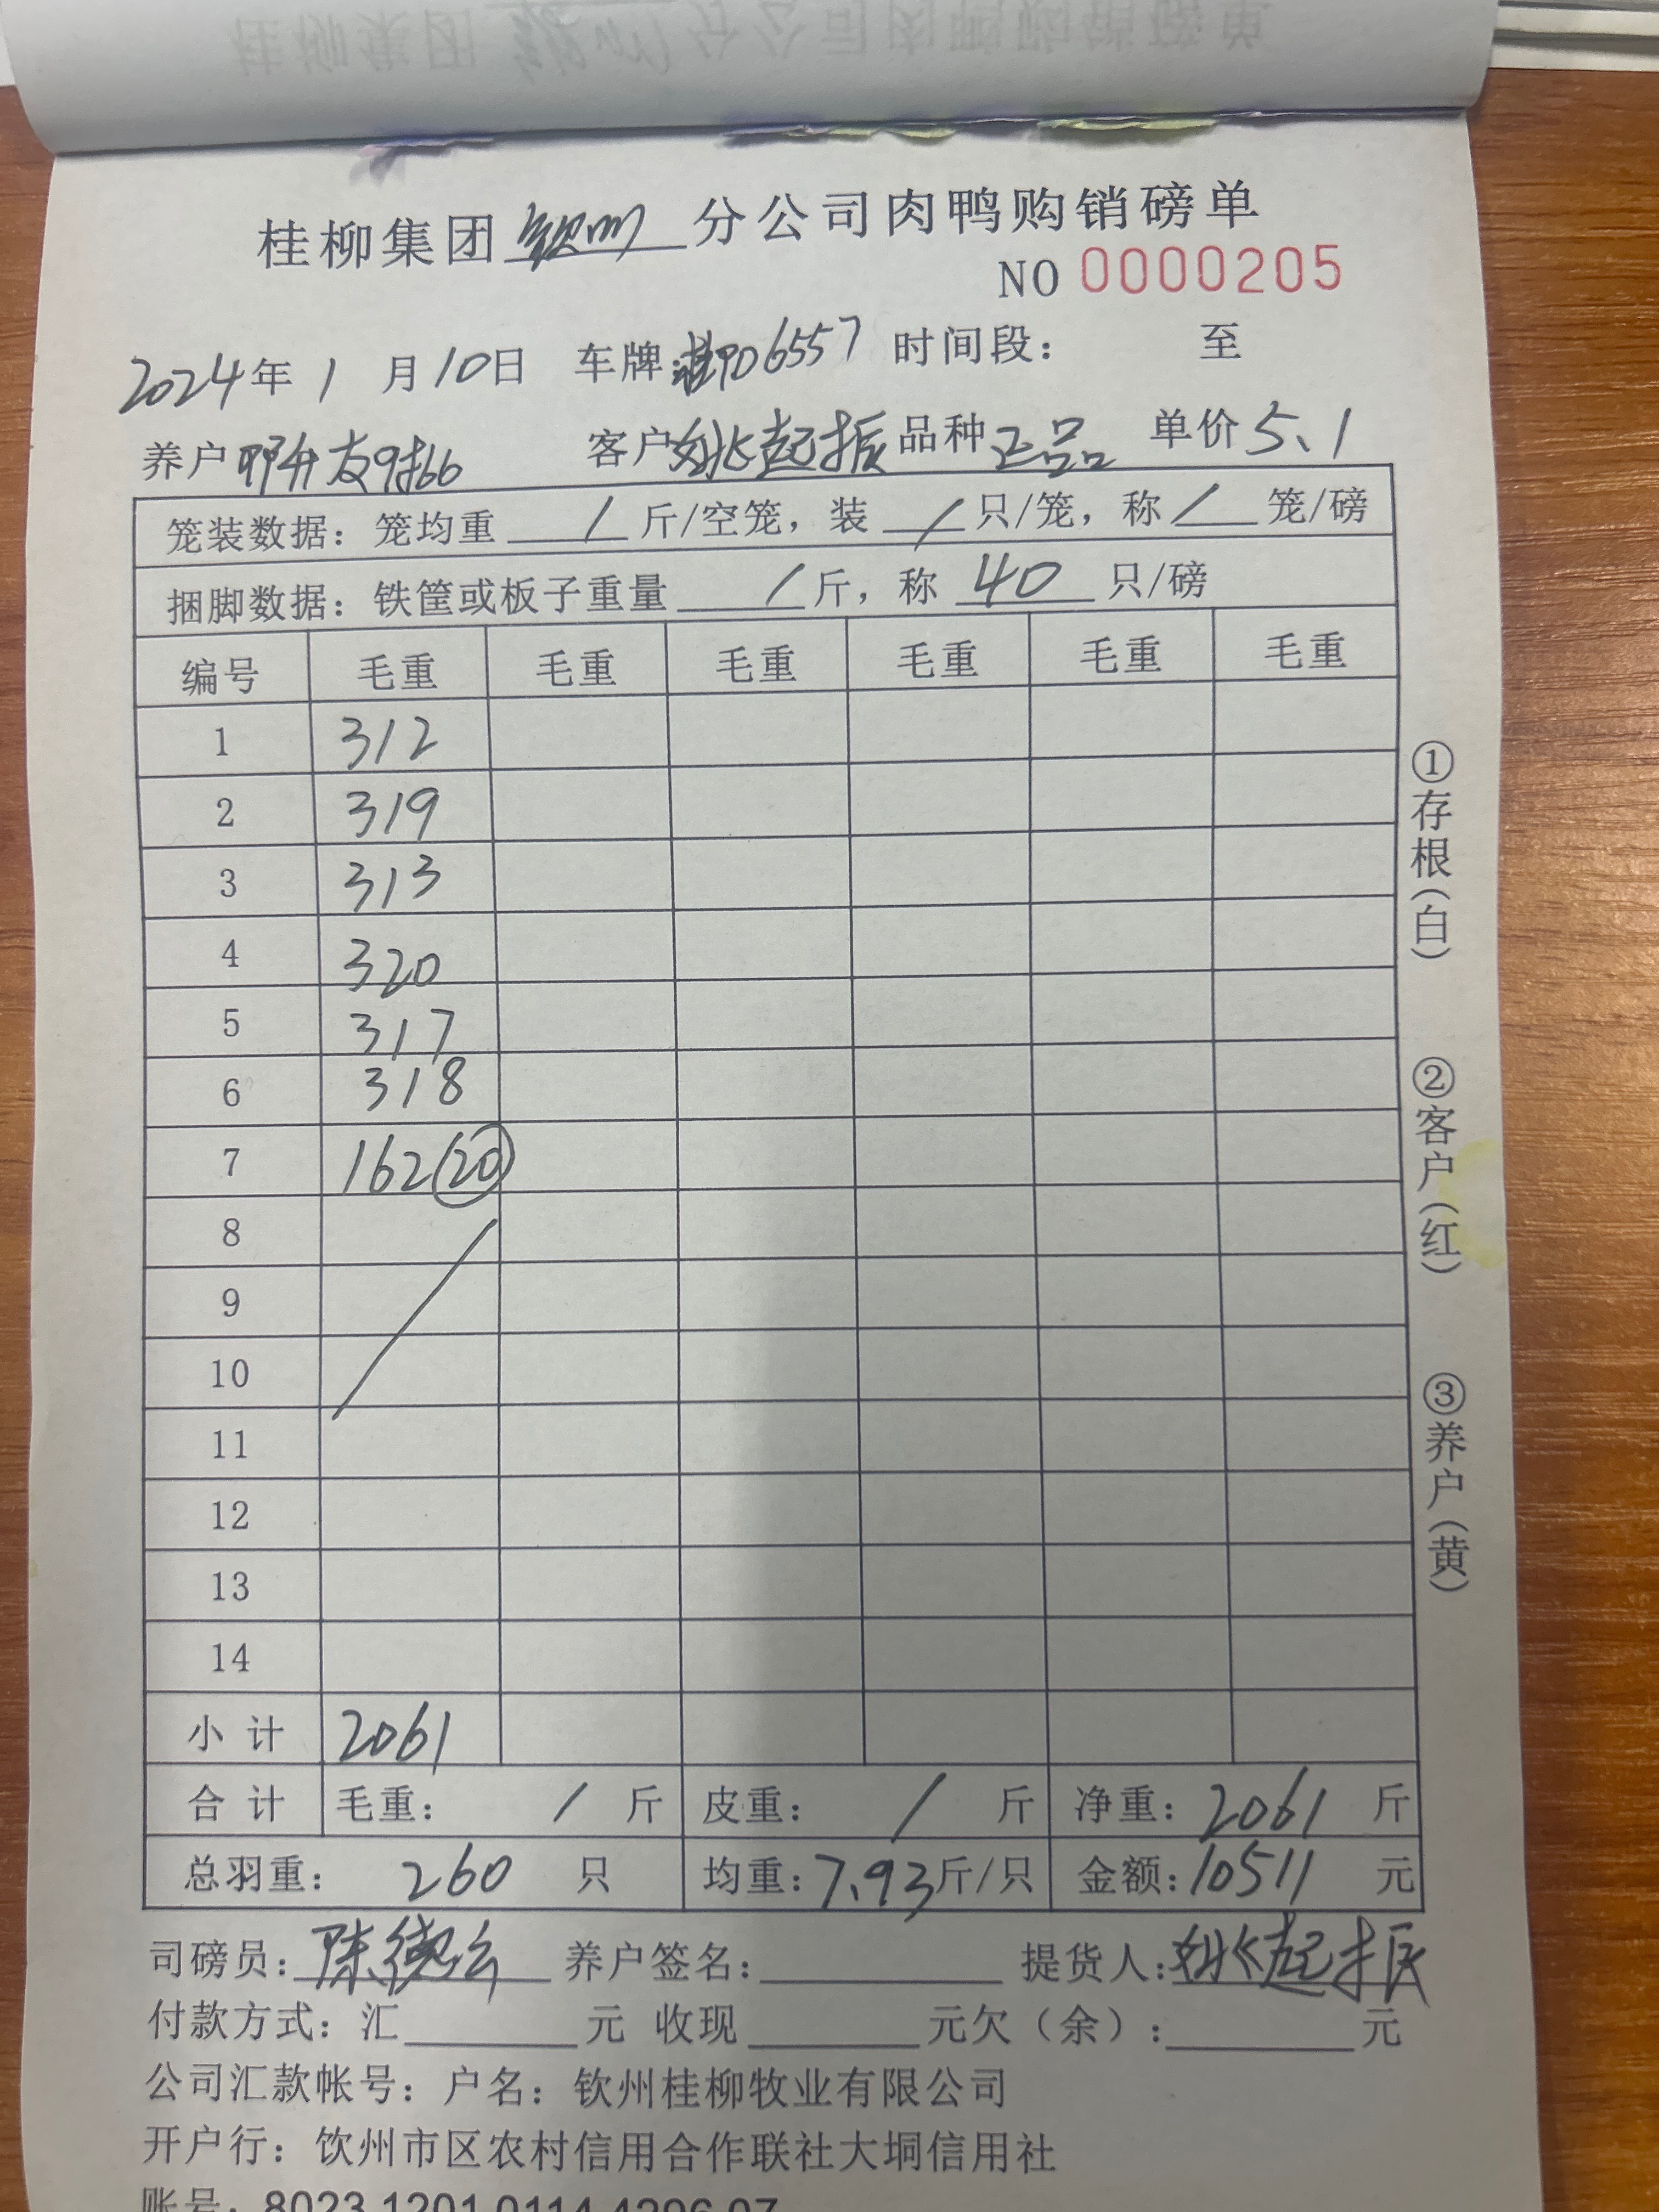 桂柳集团 钦州 分公司肉鸭购销磅单
NO 0000205
2024年 1 月10日 车牌:桂PD6557 时间段: 至
养户 升友 客户 姚起振 品种 正品 单价 5.1
笼装数据: 笼均重 / 斤/空笼, 装 / 只/笼, 称 / 笼/磅
捆脚数据: 铁筐或板子重量 / 斤, 称 40 只/磅
编号 毛重 毛重 毛重 毛重 毛重 毛重
1 312
2 319
3 313
4 320
5 317
6 318
7 162 (20)
8
9
10
11
12
13
14
小 计 2061
合 计 毛重: / 斤 皮重: / 斤 净重: 2061 斤
总羽重: 260 只 均重: 7.93斤/只 金额: 10511 元
司磅员: 陈德云 养户签名: 提货人: 姚起振
付款方式: 汇 元 收现 元欠(余): 元
公司汇款帐号: 户名: 钦州桂柳牧业有限公司
开户行: 饮州市区农村信用合作联社大垌信用社
账号: 8023 1201 0114 4296 07
①存根(白)
②客户(红)
③养户(黄)